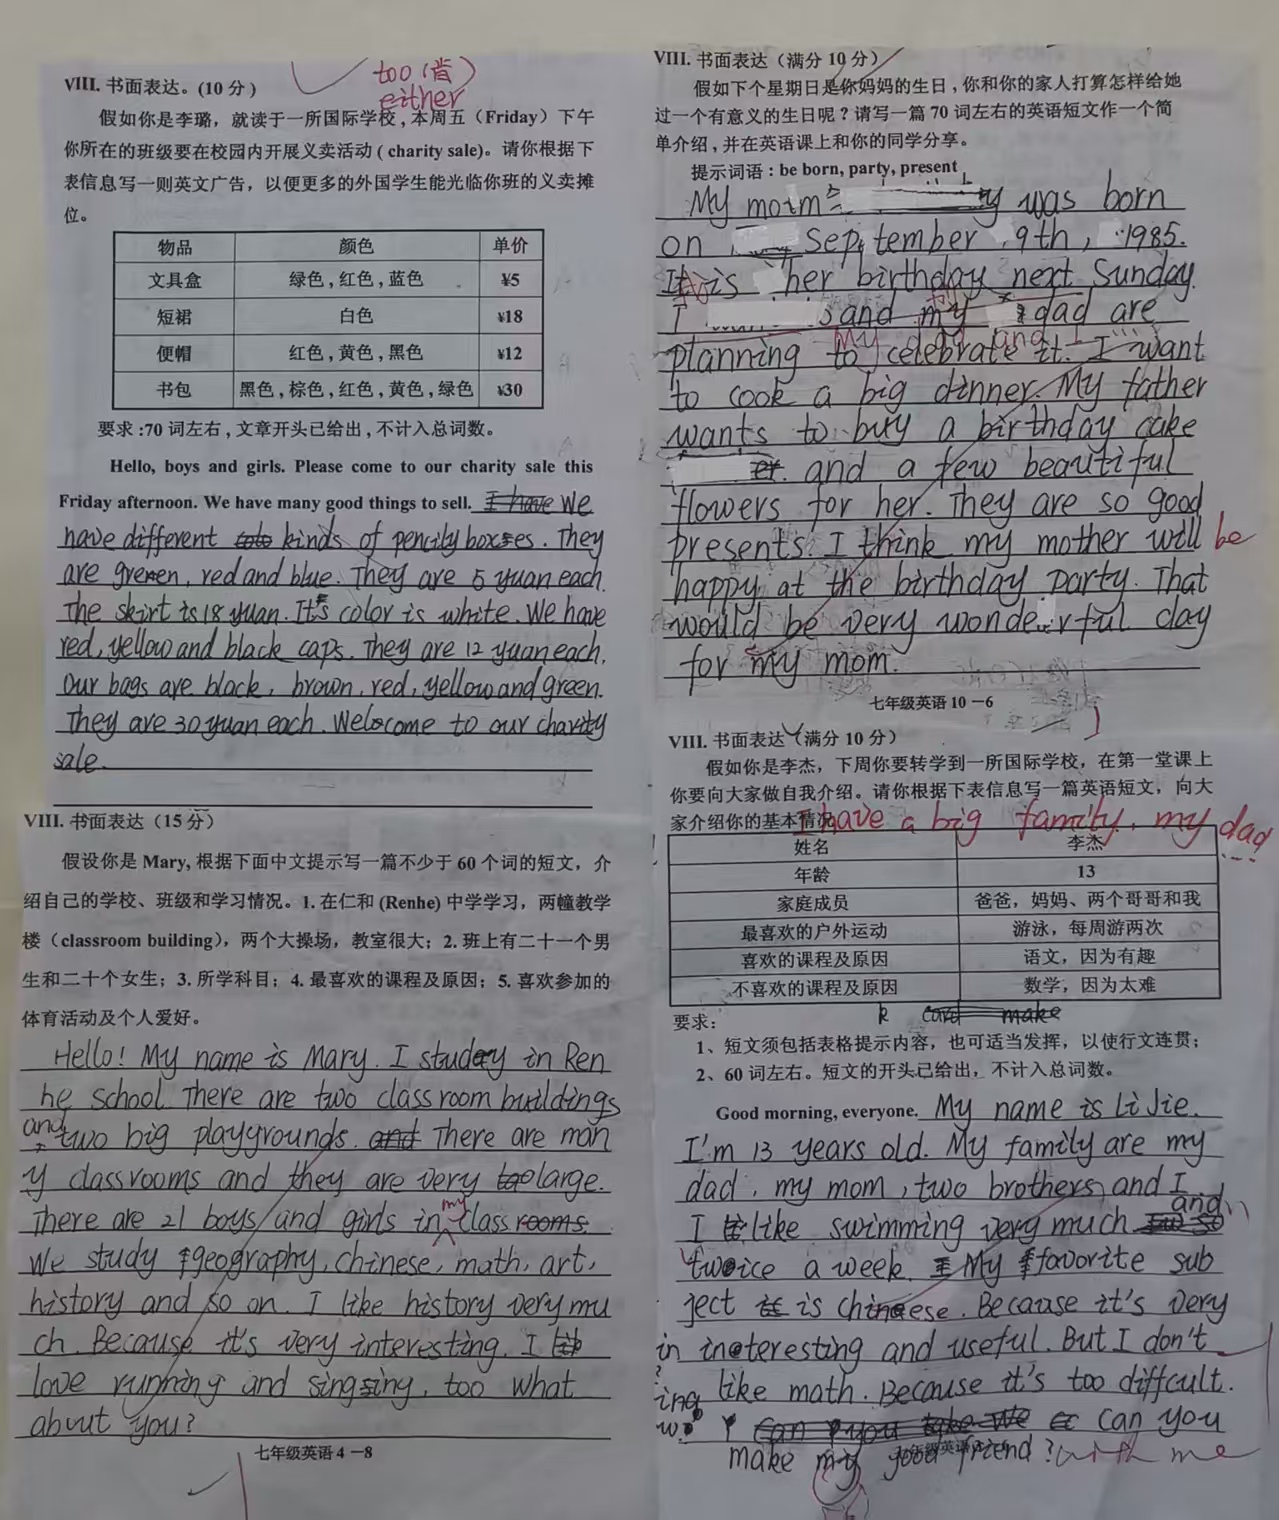 too (肯)
either
VIII. 书面表达。(10 分)
假如你是李璐，就读于一所国际学校，本周五（Friday）下午
你所在的班级要在校园内开展义卖活动 ( charity sale)。请你根据下
表信息写一则英文广告，以便更多的外国学生能光临你班的义卖摊
位。
物品 颜色 单价
文具盒 绿色，红色，蓝色 ¥5
短裙 白色 ¥18
便帽 红色，黄色，黑色 ¥12
书包 黑色，棕色，红色，黄色，绿色 ¥30
要求：70 词左右，文章开头已给出，不计入总词数。
Hello, boys and girls. Please come to our charity sale this
Friday afternoon. We have many good things to sell. I have We
have different kinds of pencily boxses. They
are green, red and blue. They are 5 yuan each.
The skirt is 18 yuan. It's color is white. We have
red, yellow and black caps. They are 12 yuan each.
Our bags are black, brown, red, yellow and green.
They are 30 yuan each. Welcome to our charity
sale.
VIII. 书面表达（15 分）
假设你是 Mary, 根据下面中文提示写一篇不少于 60 个词的短文，介
绍自己的学校、班级和学习情况。1. 在仁和 (Renhe) 中学学习，两幢教学
楼（classroom building），两个大操场，教室很大；2. 班上有二十一个男
生和二十个女生；3. 所学科目；4. 最喜欢的课程及原因；5. 喜欢参加的
体育活动及个人爱好。
Hello! My name is Mary. I study in Ren
he school. There are two classroom buildings
and two big playgrounds. and There are man
y classrooms and they are very large.
There are 21 boys and girls in my class rooms.
We study geography, chinese, math, art,
history and so on. I like history very mu
ch. Because it's very interesting. I
love running and singing, too What
about you?
七年级英语 4 －8
VIII. 书面表达（满分 10 分）
假如下个星期日是你妈妈的生日，你和你的家人打算怎样给她
过一个有意义的生日呢？请写一篇 70 词左右的英语短文作一个简
单介绍，并在英语课上和你的同学分享。
提示词语：be born, party, present
My mom was born
on September 9th, 1985.
It is her birthday next Sunday.
I and my dad are
My dad and I
planning to celebrate it. I want
to cook a big dinner. My father
wants to buy a birthday cake
and a few beautiful
flowers for her. They are so good
presents. I think my mother will be
happy at the birthday party. That
would be very wonderful day
for my mom.
七年级英语 10 －6
VIII. 书面表达（满分 10 分）
假如你是李杰，下周你要转学到一所国际学校，在第一堂课上
你要向大家做自我介绍。请你根据下表信息写一篇英语短文，向大
家介绍你的基本情况。
I have a big family, my dad
姓名 李杰
年龄 13
家庭成员 爸爸，妈妈、两个哥哥和我
最喜欢的户外运动 游泳，每周游两次
喜欢的课程及原因 语文，因为有趣
不喜欢的课程及原因 数学，因为太难
要求：
1、短文须包括表格提示内容，也可适当发挥，以使行文连贯；
2、60 词左右。短文的开头已给出，不计入总词数。
Good morning, everyone. My name is Li Jie.
I'm 13 years old. My family are my
dad, my mom, two brothers and I
I like swimming very much and
twoice a week. My favorite sub
ject is chinese. Because it's very
in interesting and useful. But I don't
like math. Because it's too diffcult.
can you
make my good friend? with me